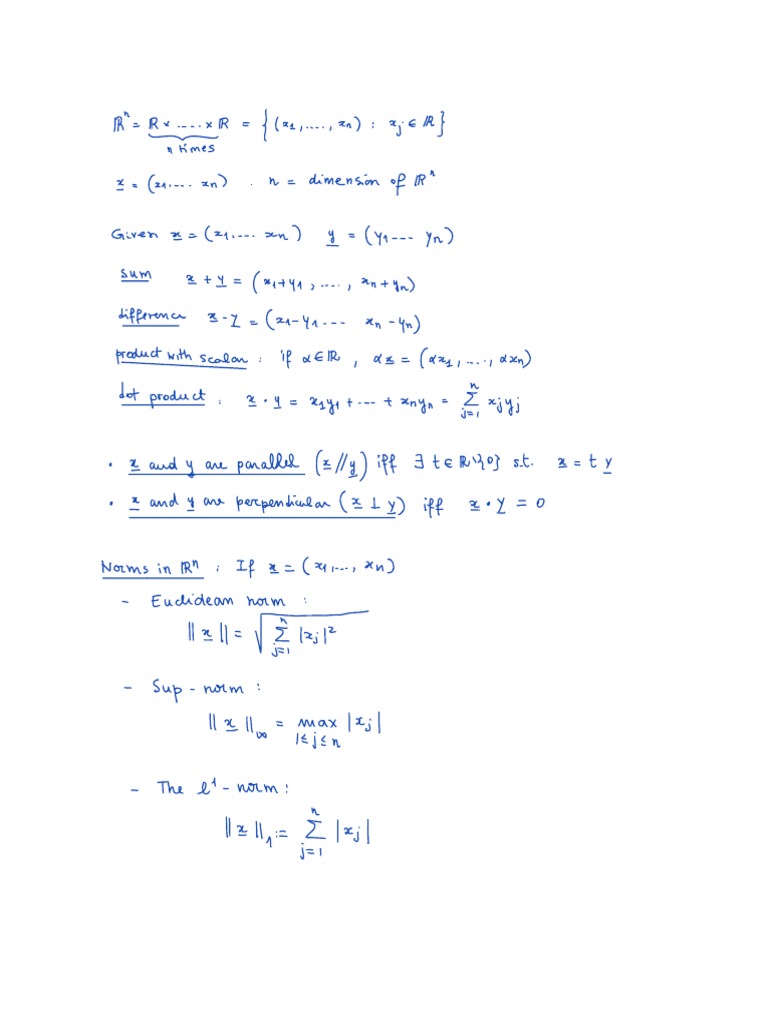 ℝⁿ = ℝ × ..... × ℝ = {(x₁, ...., xₙ) : xⱼ ∈ ℝ}
n times
x̲ = (x₁.... xₙ) . n = dimension of ℝⁿ
Given x̲ = (x₁.... xₙ) y̲ = (y₁---- yₙ)
sum x̲ + y̲ = (x₁+y₁, ...., xₙ+yₙ)
difference x̲ - y̲ = (x₁-y₁ ---- xₙ-yₙ)
product with scalar : if α∈ℝ , αx̲ = (αx₁, ...., αxₙ)
dot product : x̲ • y̲ = x₁y₁ + --- + xₙyₙ = ∑ⱼ₌₁ⁿ xⱼyⱼ
• x̲ and y are parallel (x̲ // y̲) iff ∃ t∈ℝ\{0} s.t. x̲ = t y̲
• x̲ and y̲ are perpendicular (x̲ ⊥ y̲) iff x̲ • y̲ = 0
Norms in ℝⁿ : If x̲ = (x₁,..., xₙ)
- Euclidean norm :
||x̲|| = √(∑ⱼ₌₁ⁿ |xⱼ|²)
- Sup-norm :
||x̲||∞ = max |xⱼ|
1≤j≤n
- The ℓ¹-norm :
||x̲||₁ := ∑ⱼ₌₁ⁿ |xⱼ|